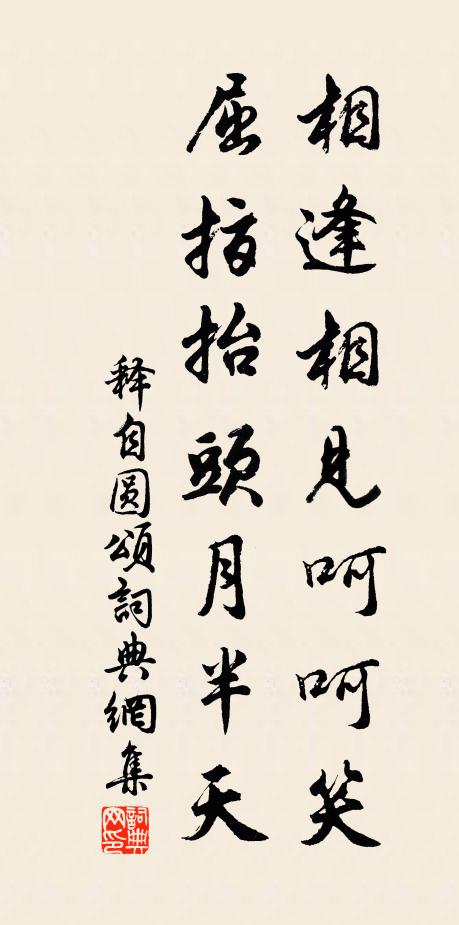 相逢相見呵呵笑
屈指抬頭月半天
释自圆頌詞典網集
詞典網印